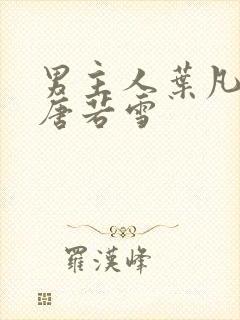 男主人葉凡
唐若雪
羅漢峰